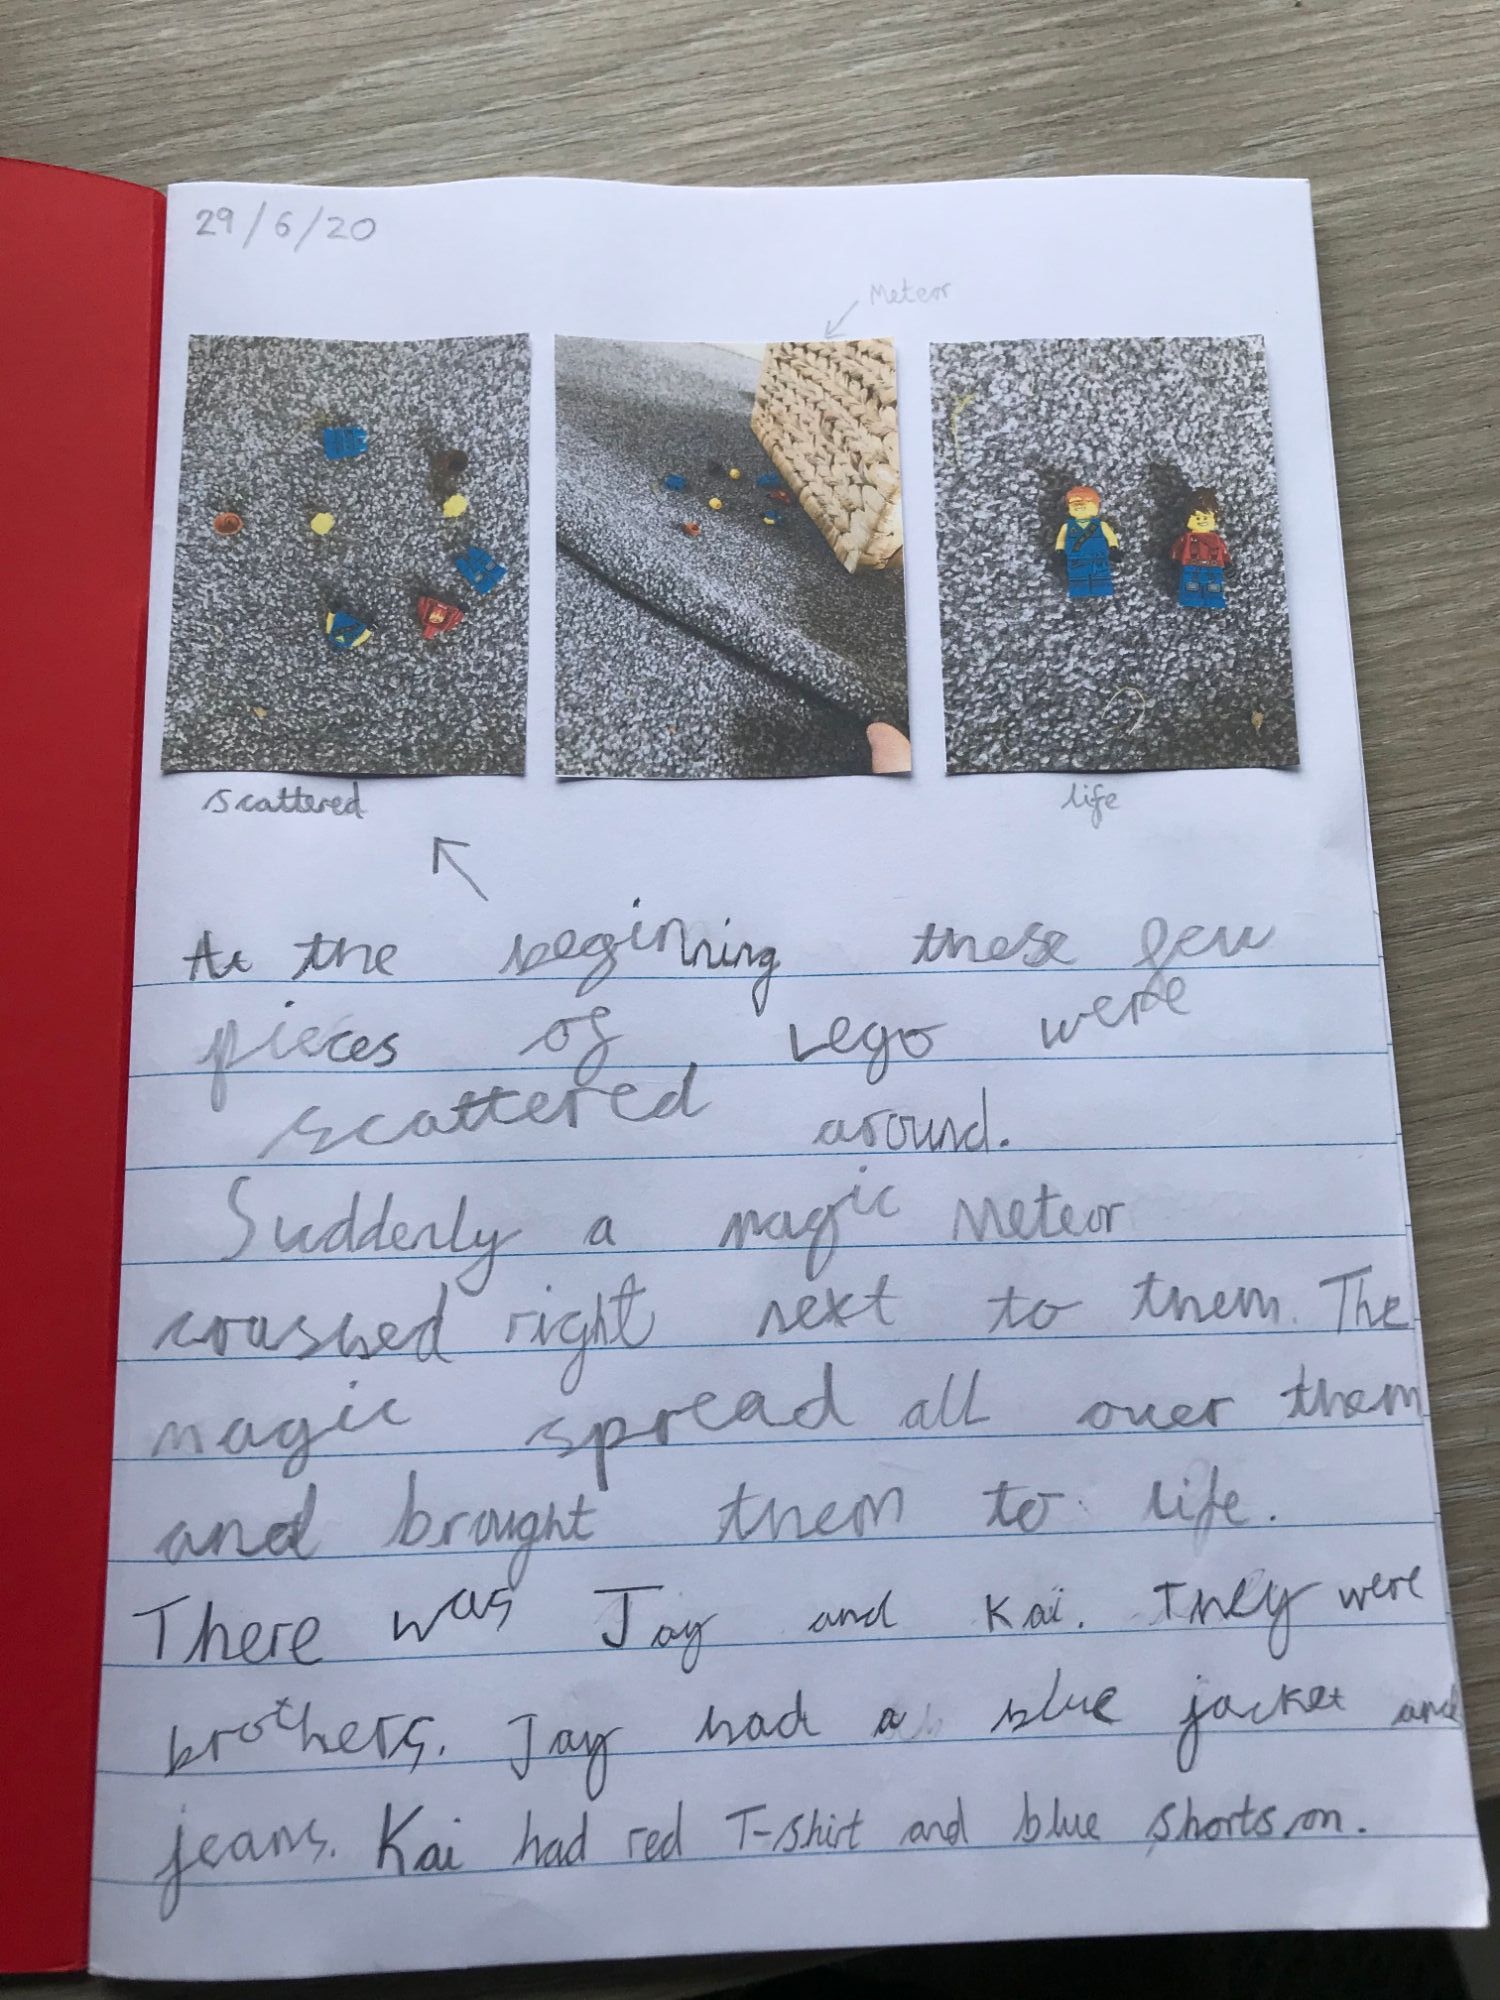 29/6/20
Meteor
scattered
life
At the beginning these few
pieces of Lego were
scattered around.
Suddenly a magic Meteor
crashed right next to them. The
magic spread all over them
and brought them to life.
There was Jay and Kai. They were
brothers. Jay had a blue jacket and
jeans. Kai had red T-shirt and blue shorts on.